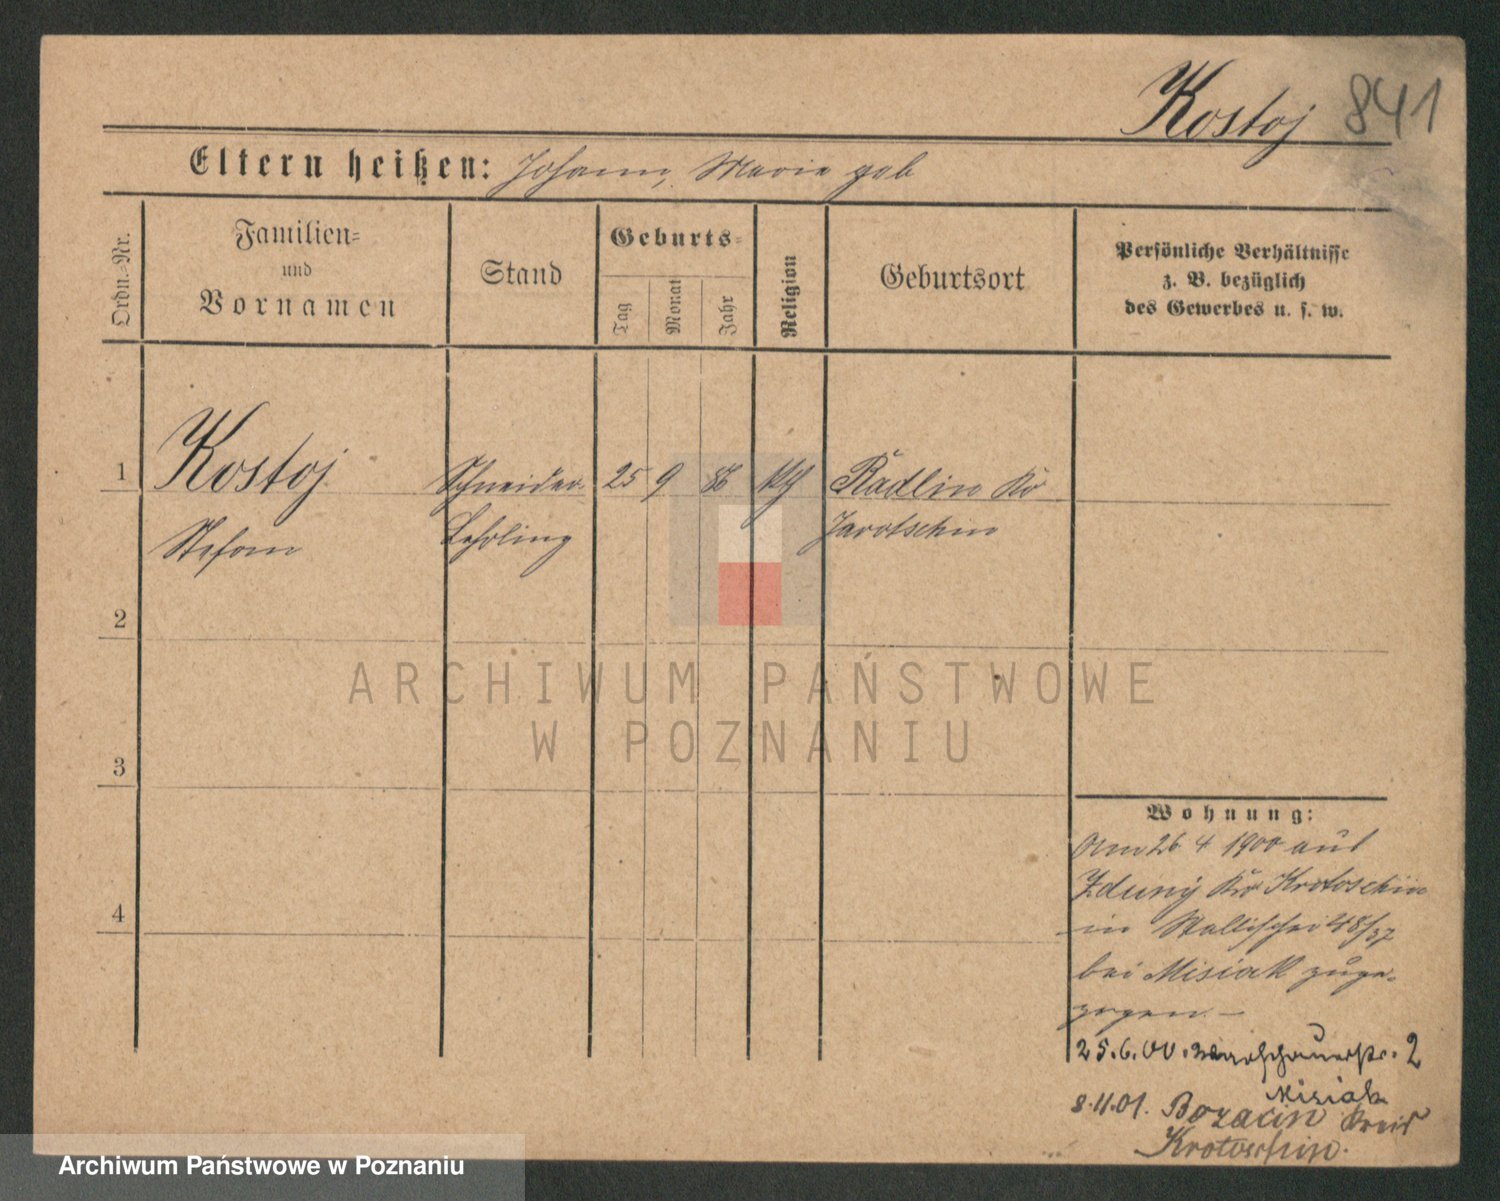 Kostoj 841
Eltern heißen: Johann, Marie geb
Ordn.-Nr.
Familien-
und
Vornamen
Stand
Geburts-
Tag
Monat
Jahr
Religion
Geburtsort
Persönliche Verhältnisse
z. B. bezüglich
des Gewerbes u. s. w.
1 Kostoj Schneider- 25 9 86 Radlin Kr
Stefan Lehrling Jarotschin
2
3
4
Wohnung:
Am 26 4 1900 aus
Zduny Kr Krotoschin
in Wallischei 48/37
bei Misiak zuge-
zogen. —
25.6.00. Warschauerstr. 2
Misiak
8.11.01. Bozacin Kreis
Krotoschin.
ARCHIWUM PAŃSTWOWE
W POZNANIU
Archiwum Państwowe w Poznaniu